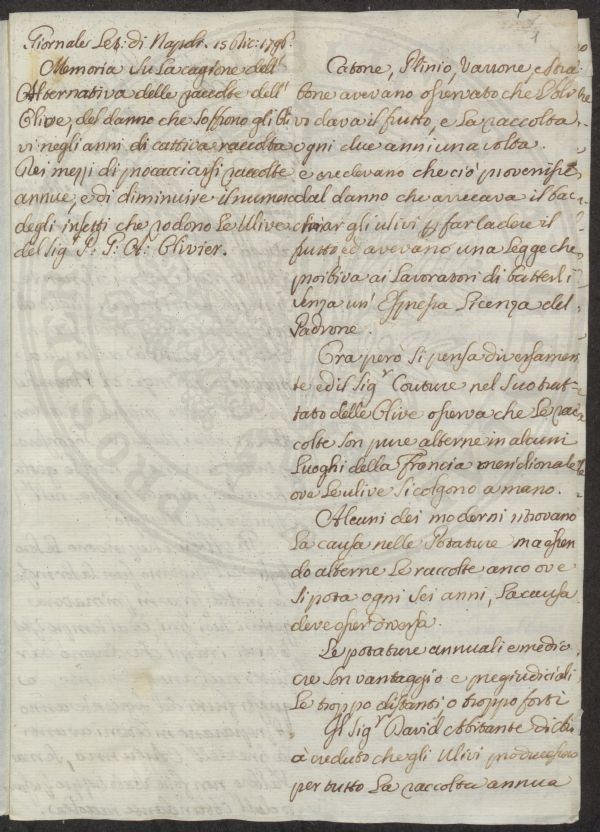 Giornale Let: di Napoli. 15 Dic: 1796.
Memoria su la cagione dell'
Alternativa delle raccolte dell'
Olive, del danno che soffrono gli Uli
vi negli anni di cattiva raccolta
Dei mezzi di procacciarsi raccolte
annue, e di diminuire il numero
degli insetti che rodono le Ulive
del Sig.r P: G: A: Olivier.
1
Catone, Plinio, Varrone, e
avevano osservato che l'Uli
vo dava il frutto, e la raccolta
ogni due anni una volta.
e credevano che ciò provenisse
dal danno che arrecava il bac
chiar gli ulivi p far cadere il
frutto ed avevano una Legge che
proibiva ai Lavoratori di batterli
senza un' Espressa Licenza del
Padrone.
Ora però si pensa diversamen
te ed il Sig.r Couture nel suo trat
tato delle Olive osserva che le rac
colte son pure alterne in alcuni
Luoghi della Francia meridionale
ove le ulive si colgono a mano.
Alcuni dei moderni ritrovano
La causa nelle Potature ma essen
do alterne le raccolte anco ove
si pota ogni sei anni, la causa
deve esser diversa.
Le potature annuali e medio
cre son vantaggio e pregiudiciali
le troppo distanti o troppo forti
Il Sig.r David Abitante di
à creduto che gli Ulivi producessero
per tutto la raccolta annua